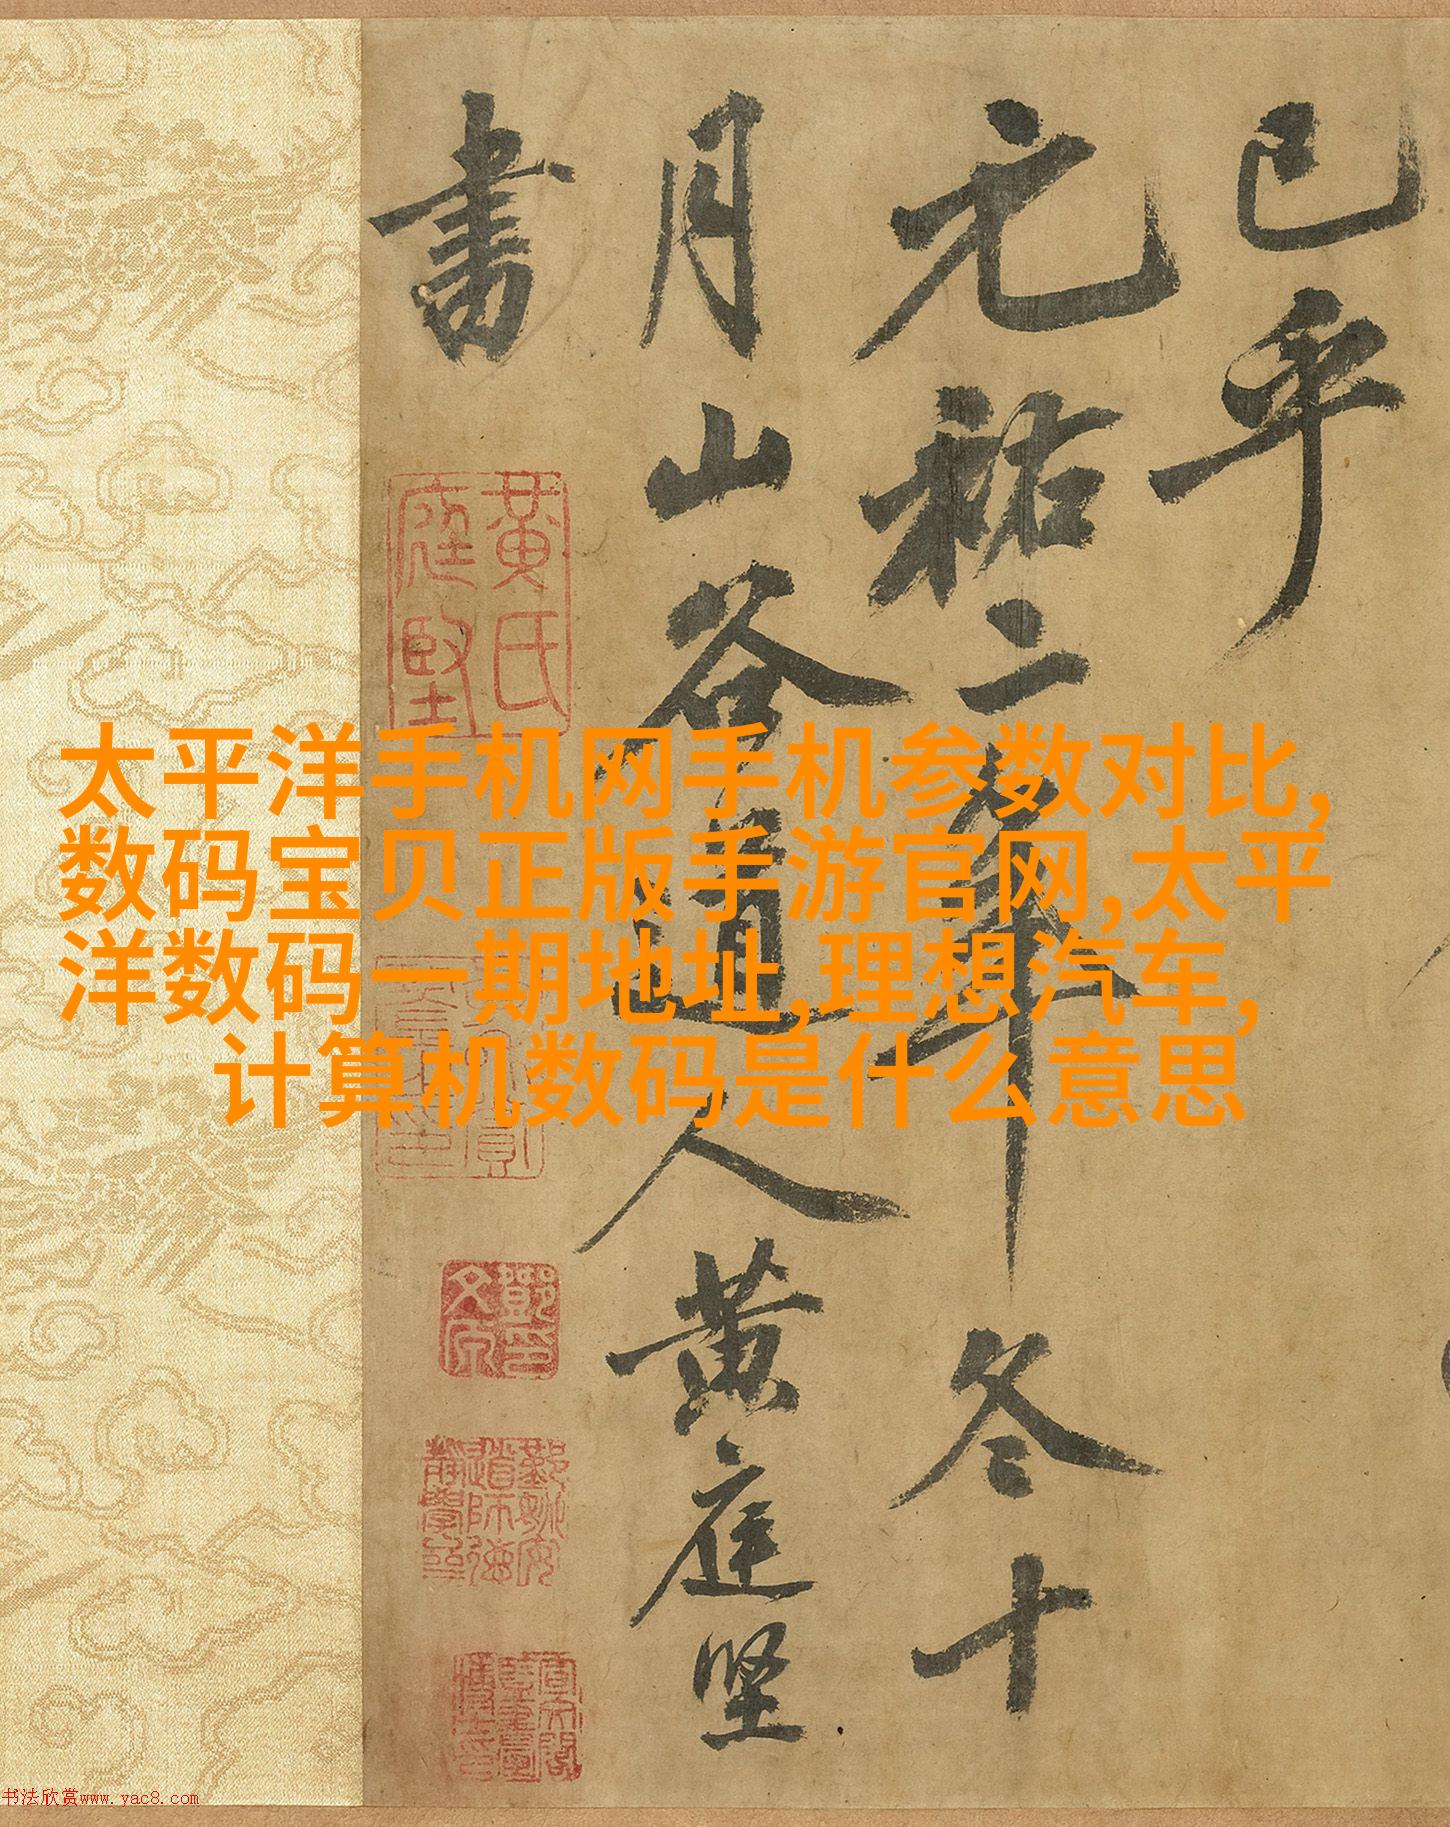 已乎
元祐二年冬十
月山谷道人黄庭坚
書
黃氏
庭堅
太平洋手机网手机参数对比,
数码宝贝正版手游官网,太平
洋数码一期地址,理想汽车,
计算机数码是什么意思
书法欣赏www.yac8.com